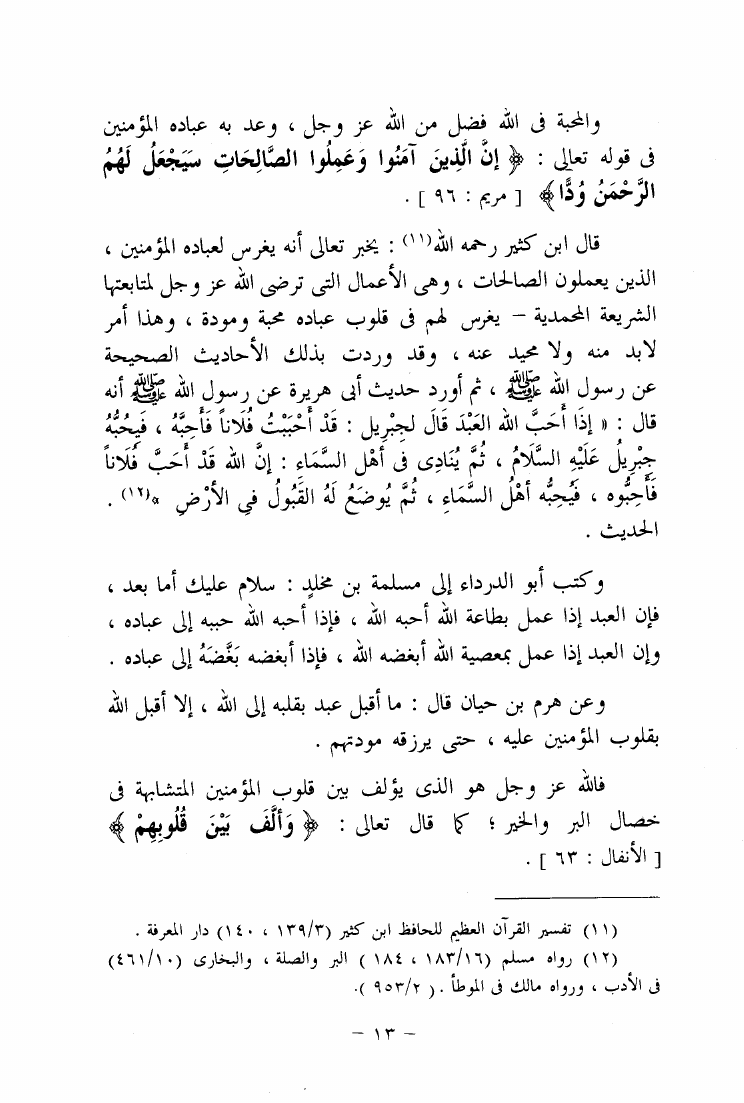 والمحبة فى الله فضل من الله عز وجل ، وعد به عباده المؤمنين
فى قوله تعالى : ﴿ إِنَّ الَّذِينَ آمَنُوا وَعَمِلُوا الصَّالِحَاتِ سَيَجْعَلُ لَهُمُ
الرَّحْمَنُ وُدًّا ﴾ [ مريم : ٩٦ ] .
قال ابن كثير رحمه الله(١١) : يخبر تعالى أنه يغرس لعباده المؤمنين ،
الذين يعملون الصالحات ، وهى الأعمال التى ترضى الله عز وجل لمتابعتها
الشريعة المحمدية – يغرس لهم فى قلوب عباده محبة ومودة ، وهذا أمر
لابد منه ولا محيد عنه ، وقد وردت بذلك الأحاديث الصحيحة
عن رسول الله ﷺ ، ثم أورد حديث أبى هريرة عن رسول الله ﷺ أنه
قال : « إِذَا أَحَبَّ الله العَبْدَ قَالَ لجِبْرِيل : قَدْ أَحْبَبْتُ فُلَاناً فَأَحِبَّهُ ، فَيُحِبُّهُ
جِبْرِيلُ عَلَيْهِ السَّلَامُ ، ثُمَّ يُنَادِى فى أَهْلِ السَّمَاءِ : إِنَّ الله قَدْ أَحَبَّ فُلَاناً
فَأَحِبُّوه ، فَيُحِبُّه أَهْلُ السَّمَاءِ ، ثُمَّ يُوضَعُ لَهُ القَبُولُ فِى الأَرْضِ »(١٢) .
الحديث .
وكتب أبو الدرداء إلى مسلمة بن مخلدٍ : سلام عليك أما بعد ،
فإن العبد إذا عمل بطاعة الله أحبه الله ، فإذا أحبه الله حببه إلى عباده ،
وإن العبد إذا عمل بمعصية الله أبغضه الله ، فإذا أبغضه بَغَّضَهُ إلى عباده .
وعن هرم بن حيان قال : ما أقبل عبد بقلبه إلى الله ، إلا أقبل الله
بقلوب المؤمنين عليه ، حتى يرزقه مودتهم .
فالله عز وجل هو الذى يؤلف بين قلوب المؤمنين المتشابهة فى
خصال البر والخير ؛ كما قال تعالى : ﴿ وَأَلَّفَ بَيْنَ قُلُوبِهِمْ ﴾
[ الأنفال : ٦٣ ] .
(١١) تفسير القرآن العظيم للحافظ ابن كثير (١٣٩/٣ ، ١٤٠) دار المعرفة .
(١٢) رواه مسلم (١٨٣/١٦ ، ١٨٤ ) البر والصلة ، والبخارى (٤٦١/١٠)
فى الأدب ، ورواه مالك فى الموطأ . ( ٩٥٣/٢ ).
– ١٣ –